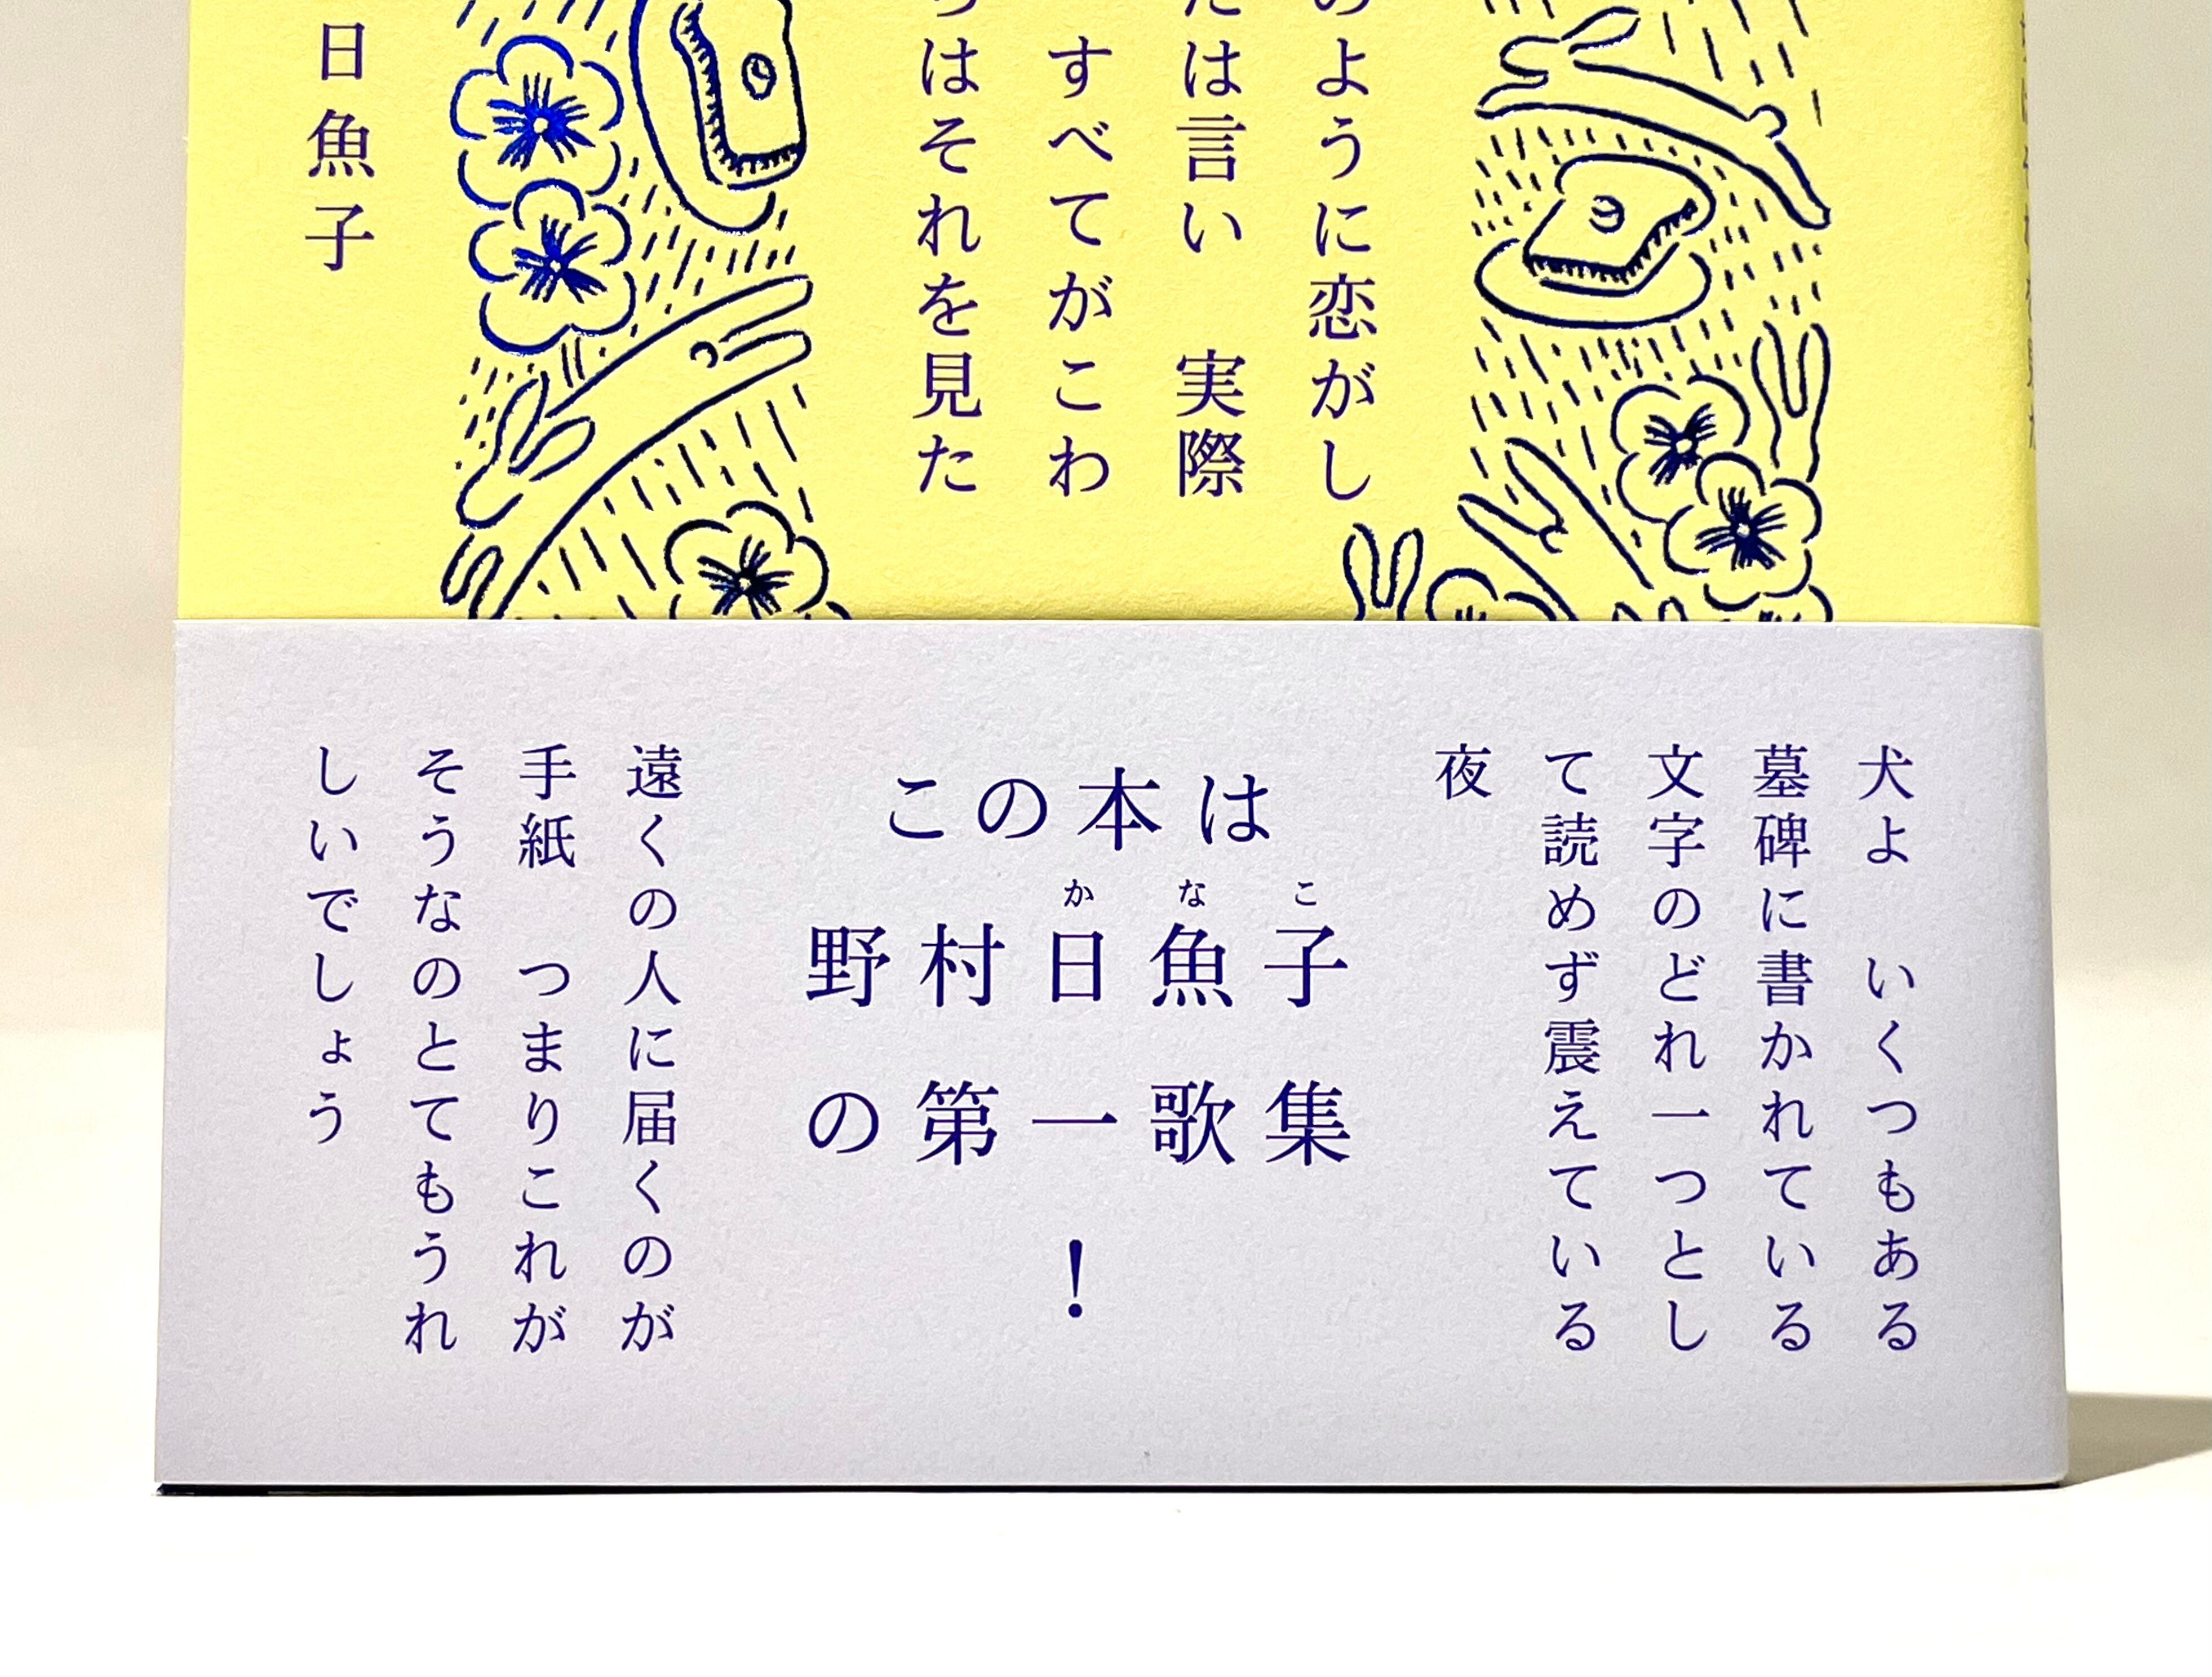 のように恋がし
たは言い　実際
すべてがこわ
らはそれを見た
日魚子
犬よ　いくつもある
墓碑に書かれている
文字のどれ一つとし
て読めず震えている
夜
この本は
かなこ
野村日魚子
の第一歌集
！
遠くの人に届くのが
手紙　つまりこれが
そうなのとてもうれ
しいでしょう